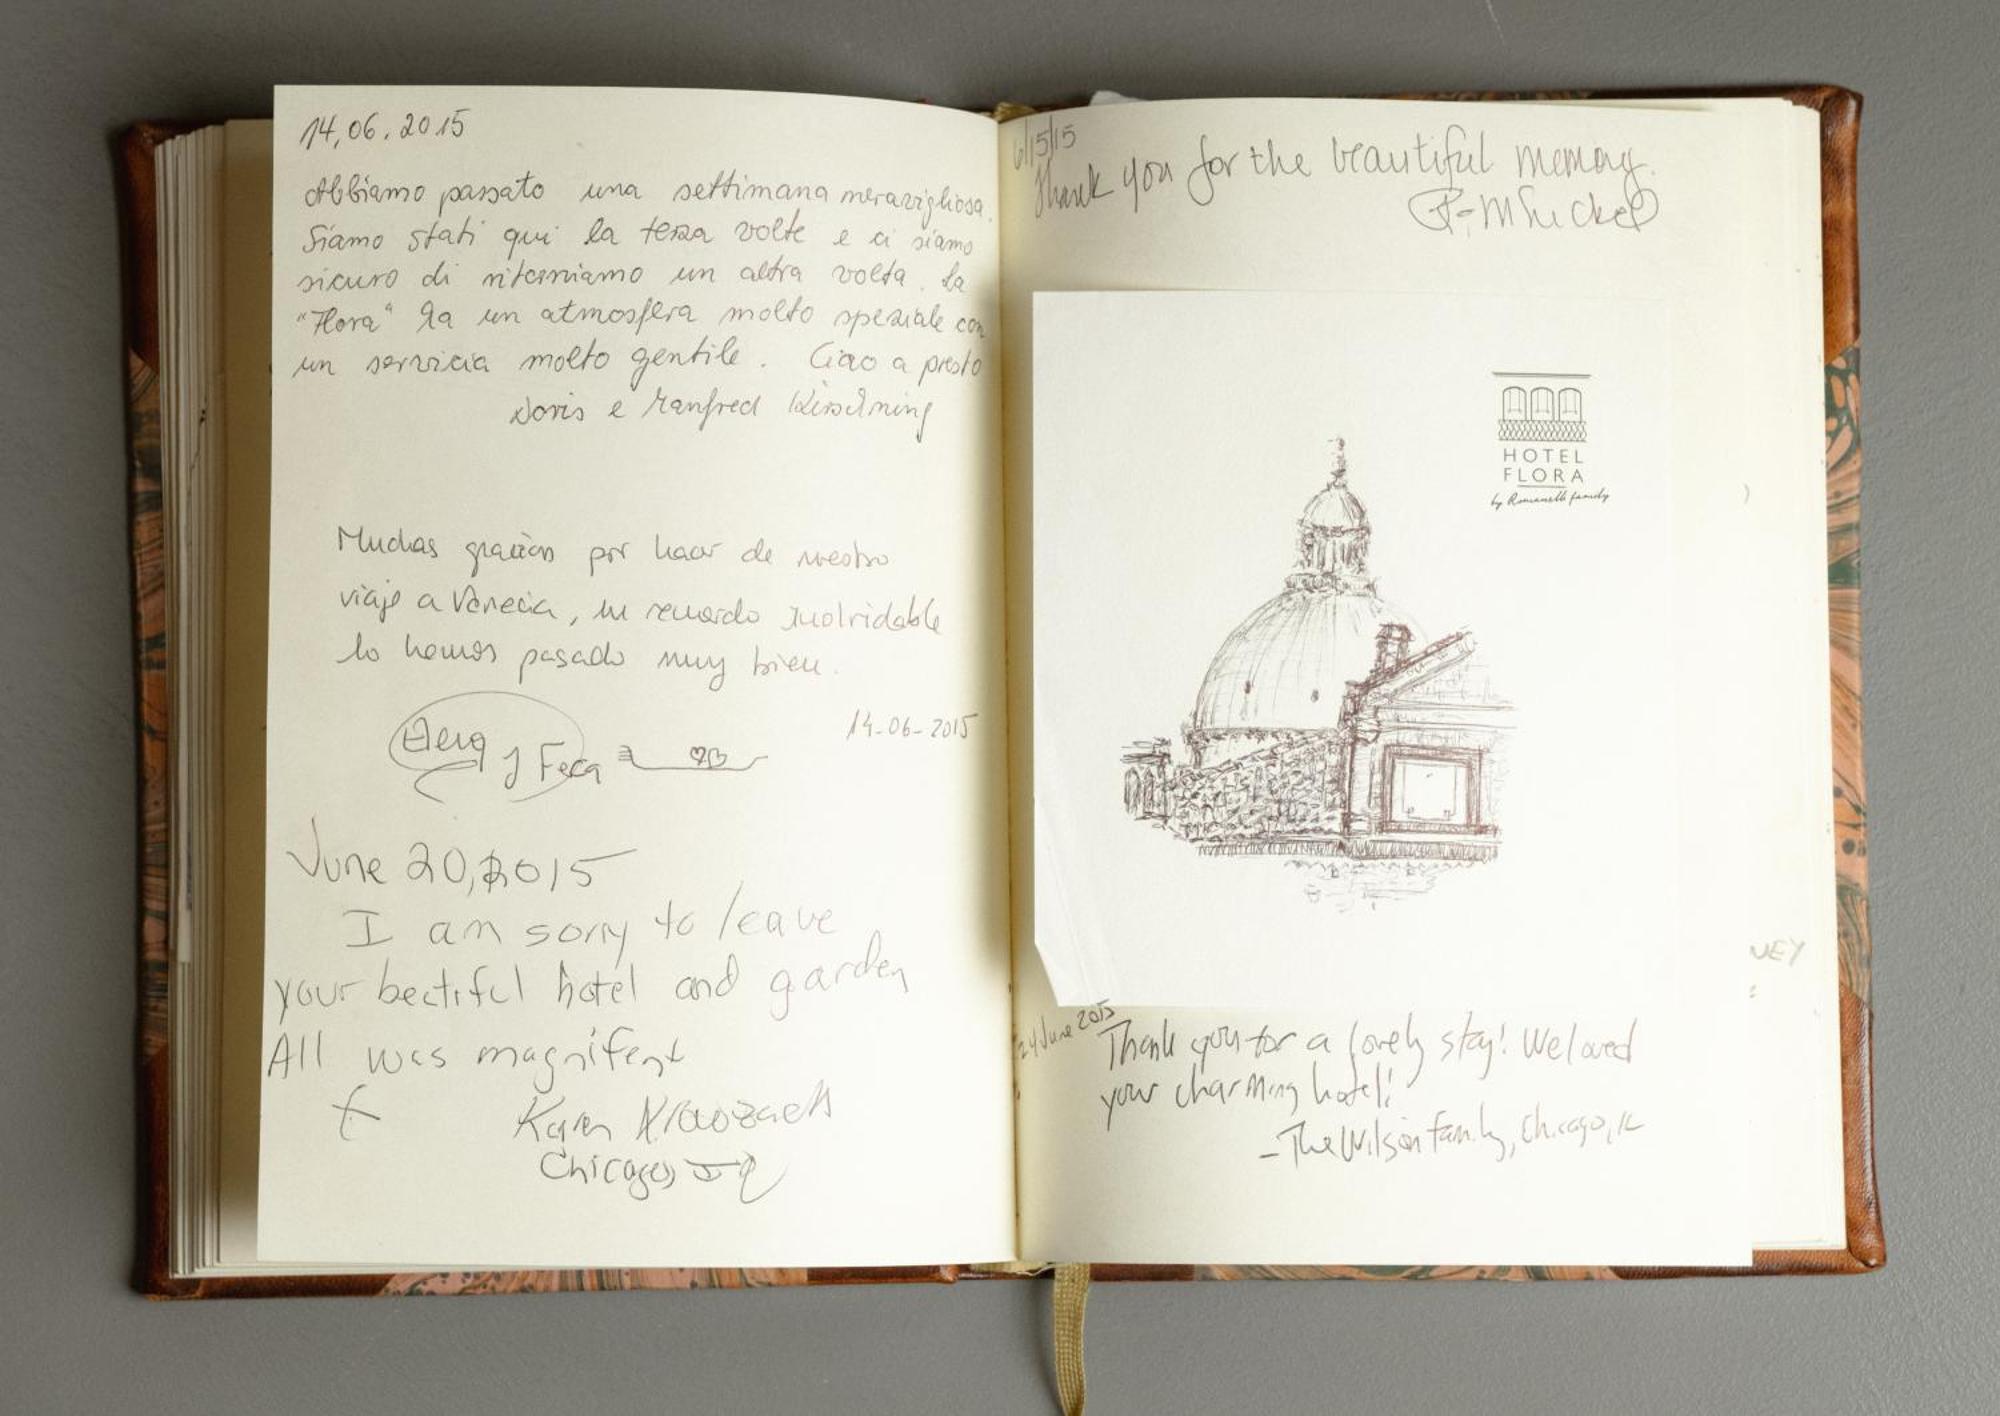 14.06.2015
Abbiamo passato una settimana meravigliosa.
Siamo stati qui la terza volte e ci siamo
sicuro di ritorniamo un altra volta. La
"Flora" ha un atmosfera molto speziale con
un servicia molto gentile. Ciao a presto
Doris e Manfred
Muchas gracias por hacer de nuestro
viaje a Venecia, un recuerdo inolvidable
lo hemos pasado muy bien.
14-06-2015
y
June 20, 2015
I am sorry to leave
your bectiful hotel and garden
All was magnifent
Karen
Chicago,
6/15/15
Thank you for the beautiful memory.
HOTEL
FLORA
by Romanelli family
NEY
24 June 2015
Thank you for a lovely stay! We loved
your charming hotel!
- The Wilson Family, Chicago, IL